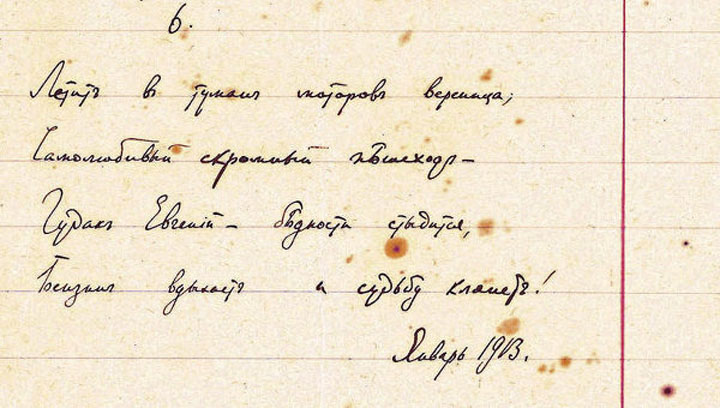 6.
Летитъ в туманъ моторовъ вереница;
Самолюбивый скромный пѣшеходъ —
Чудакъ Евгеній — бѣдности стыдится,
Бензинъ вдыхаетъ и судьбу клянетъ!
Январь 1913.